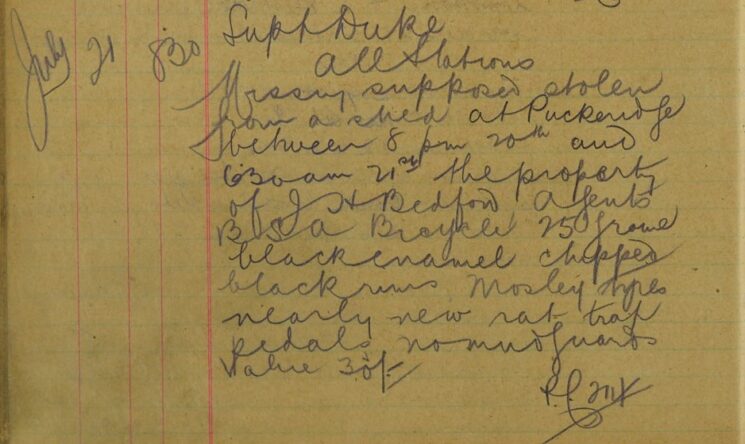 July 21 830 Supt Duke
All Stations
Missing supposed stolen
from a shed at Puckeridge
between 8 pm 20th and
630 am 21st the property
of J H Bedford Agents
B S A Bicycle 25 frame
black enamel chipped
black rims Mosley tyres
nearly new rat trap
pedals no mudguards
Value 30/-
P.C.